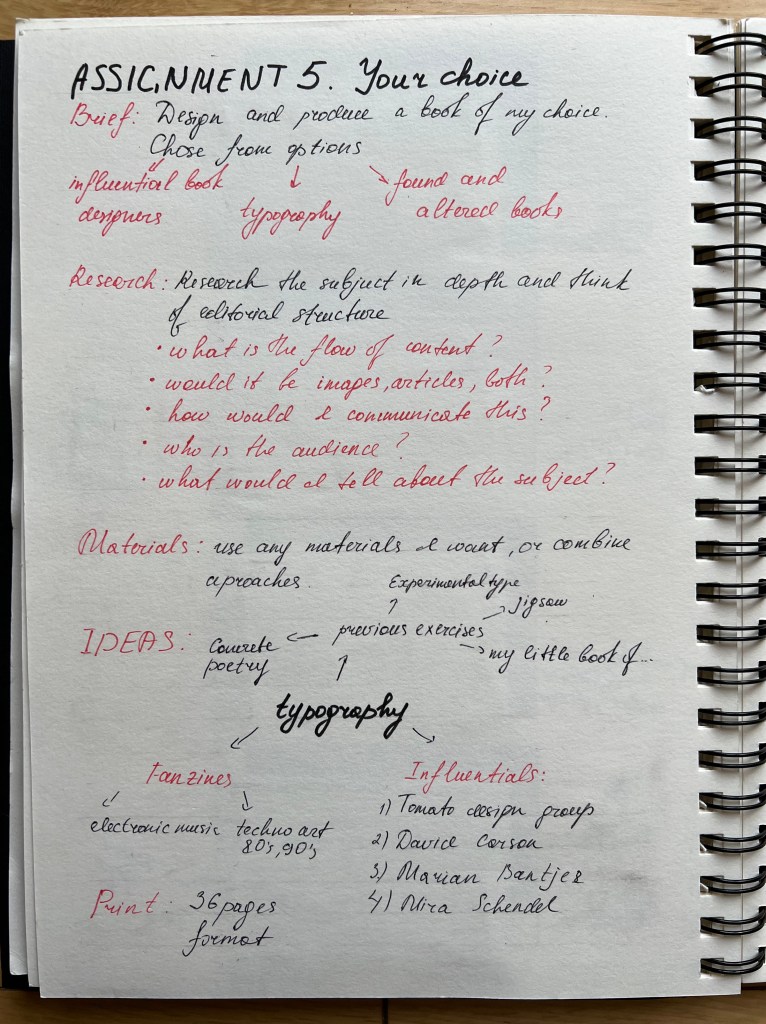 ASSIGNMENT 5. Your choice
Brief: Design and produce a book of my choice.
Chose from options
influential book
designers
typography
found and
altered books
Research: Research the subject in depth and think
of editorial structure
• what is the flow of content?
• would it be images, articles, both?
• how would I communicate this?
• who is the audience?
• what would I tell about the subject?
Materials: use any materials I want, or combine
aproaches.
Experimental type
Jigsaw
IDEAS: Concrete
poetry
previous exercises
my little book of...
typography
Fanzines
electronic music
techno art
80's, 90's
Influentials:
1) Tomato design group
2) David Carson
3) Marian Bantjes
4) Mira Schendel
Print: 36 pages
format